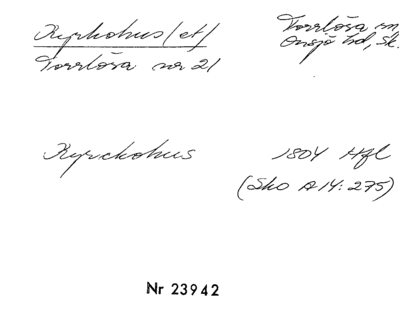 Kyrkohus (et)
Torrlösa sn,
Onsjö hd, Sk.
Torrlösa nr 21
Kyrckohus
1804 Hfl
(Sko A14:275)
Nr 23942